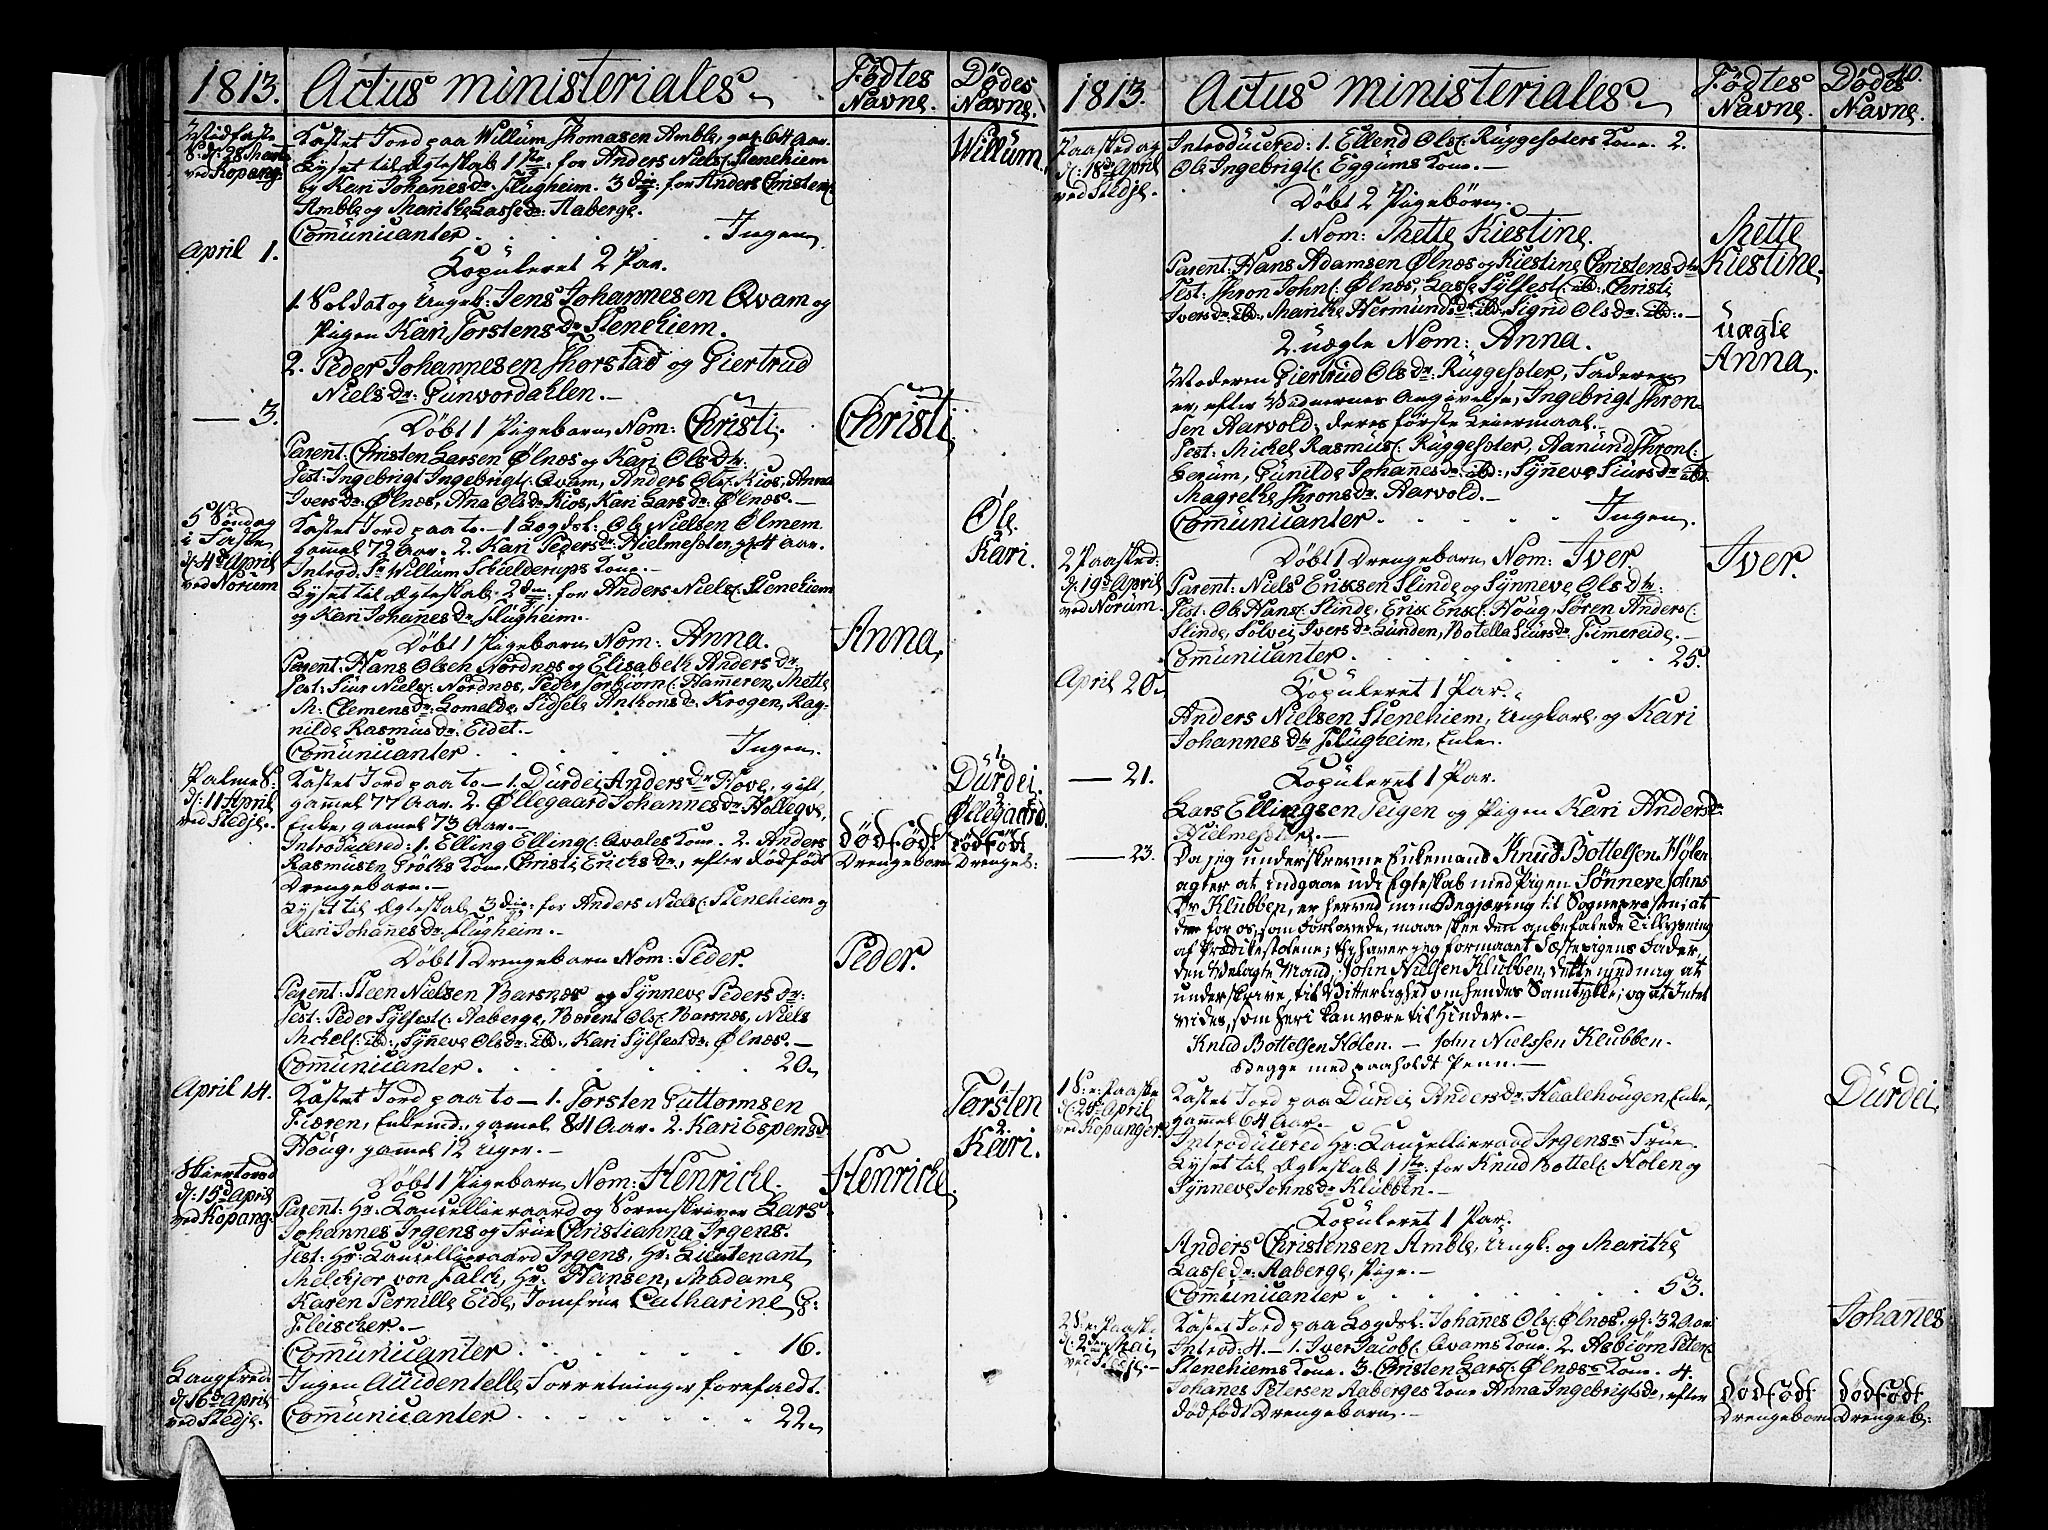 1813. Actus ministeriales. Fødtes Navne. Dødes Navne.
Midfaste
S: d: 28 Marts
ved Kopang:
Kastet Jord paa Willum Thomasen Amble, gl: 64 Aar.
Lyset til Ægteskab 1ste: for Anders Niels: Stenehiem
og Kari Johanesdr: Flugheim. 3die: for Anders Christens:
Amble og Marithe Lassedr: Aaberge.
Communicanter . . . . . Ingen.
Willum.
April 1.
Kopuleret 2 Par.
1. Soldat og Ungk: Jens Johannesen Qvam og
Pigen Kari Torstensdr Stenehiem.
2. Peder Johannesen Thorstad og Giertrud
Nielsdr: Gunvordahlen.
— 3.
Døbt 1 Pigebarn, Nom: Christi.
Christi,
Parent: Christen Larsen Ølnæs og Kari Olsdtr:
Test: Ingebrigt Ingebrigt: Qvam, Anders Ols: Kios, Anna
Iversdr: Ølnæs, Ana Olsdr Kios, Kari Larsdr: Ølnæs.
5 Søndag
i Faste
d: 4de April
ved Norum
Kastet Jord paa to— 1 Lægdsl: Ole Nielsen Ølmem
gamel 72 Aar. 2. Kari Pedersdr: Hielmesæter, gl: 4 Aar.
Introd: Sr Willum Schielderups Kone.
Lyset til Ægteskab 2den: for Anders Niels: Stenehiem
og Kari Johanesdr Flugheim.
Ole.
2
Kari.
Døbt 1 Pigebarn Nom: Anna.
Anna,
Parent: Hans Olsen Nordnæs og Elisabeth Andersdr:
Test: Siur Niels: Nordnæs, Peder Torbiørn: Hammeren, Mette
M: Clemensdr: Lomelde, Sidsele Anthonsdr: Krogen, Rag-
nilde Rasmusdr: Eidet.
Communicanter . . . . Ingen.
Palme S:
d: 11 April
ved Stedje.
Kastet Jord paa to— 1. Durdei Andersdr Hove, gift,
gammel 77 Aar. 2. Øllegaard Johannesdr: Hollegve,
Enke, gamel 73 Aar.
Introducered: 1. Elling Elling: Qvales Kone. 2. Anders
Rasmussen Grøths Kone, Christi Ericksdr:, efter dødfødt
Drengebarn.
Lyset til Ægteskab 3die: for Anders Niels: Stenehiem og
Kari Johanesdr: Flugheim.
dødfødt
Drengebarn
1
Durdei,
2
Øllegaard.
dødfødt
Drengeb:
Døbt 1 Drengebarn Nom: Peder.
Peder.
Parent: Steen Nielsen Barsnæs og Synneve Pedersdr:
Test: Peder Sylfest: Aaberge, Bærent Ols: Barsnæs, Niels
Mikel: ibd:, Synneve Olsdr: ibd:, Kari Sylfestdr: Ølnæs.
Communicanter . . . . . 20.
April 14.
Kastet Jord paa to— 1. Torsten Guttormsen
Fiæren, Enkemd:, gamel 84 Aar. 2. Kari Espensdr:
Houg, gammel 12 Uger.
Torsten
2.
Kari.
Skiertorsd
d: 15d April
ved Kopang:
Døbt 1 Pigebarn Nom: Henriche.
Henriche,
Parent: Hr: Cancellieraad og Sorenskriver Lars
Johannes Irgens og Frue Christianna Irgens.
Test: Hr: Cancellieraad Irgens, Hr: Lieutenant
Melchjor von Falch, Hr: Hansen, Madame
Karen Pernille Eide, Jomfrue Catharine G:
Fleischer.
Communicanter . . . . . 16.
Langfred:
d: 16de April
ved Stedje.
Ingen Accidentelle Forretninger forefaldt.
Communicanter . . . . . 22.
1813. Actus ministeriales. Fødtes Navne. Dødes Navne. 40.
Paaskedag
d: 18de April
ved Stedje.
Introducered: 1. Ellend Ols: Ruggesæters Kone. 2.
Ole Ingebrigt: Eggums Kone.
Døbt 2 Pigebørn.
1. Nom: Mette Kiestine.
Mette
Kiestine.
Parent: Hans Adamsen Ølnæs og Kiestine Christensdtr
Test: Thron John: Ølnæs, Lasse Sylfest: ibd:, Christi
Iversdr: ibd:, Marithe Hermundsdr: ibd:, Sigrid Olsdr: ibd:
2. uægte Nom: Anna.
uægte
Anna.
Moderen Giertrud Olsdr: Ruggesæter, Faderen
er, efter Vidnernes Angivelse, Ingebrigt Thron-
sen Aarvold, deres første Leiermaal.
Test: Michel Rasmus: Ruggesæter, Aamund Thron:
Lerum, Gunilde Johanesdr ibd:, Synneve Siursdr ibd:
Magrethe Thronsdr: Aarvold.
Communicanter . . . . . Ingen.
2 Paasked:
d: 19de April
ved Norum.
Døbt 1 Drengebarn Nom: Iver.
Iver.
Parent: Niels Eriksen Slinde og Synneve Olsdtr:
Test: Ole Hans: Slinde, Erik Erik: Houg, Søren Anders:
Slinde, Solvei Iversdr Lunden, Botella Siursdr Fimmereide.
Communicanter . . . . . 25.
April 20.
Kopuleret 1 Par.
Anders Nielsen Stenehiem, Ungkarl, og Kari
Johannesdtr Flugheim, Enke.
— 21.
Kopuleret 1 Par.
Lars Ellingsen Teigen og Pigen Kari Andersdr
Hielmesæter.
— 23.
Da jeg underskrevne Enkemand Knud Bottelsen Hølen
agter at indgaae udi Egteskab med Pigen Sønneve Johns
Dr Klubben, er herved min Begjæring til Sognepræsten, at
der for os, som Forlovede, maae skee den anbefalede Tillysning
af Prædikestolene; thi haver jeg formaaet Fæstepigens Fader
den Velagte Mand, John Nielsen Klubben, dette med mig at
underskrive, til Vitterlighed om hendes Samtykke; og at Intet
vides, som heri kan være til Hinder.
Knud Bottelsen Hølen. — John Nielssen Klubben.
Begge med paaholdt Penn.
1 S: e: Paaske
d: 25de April
ved Kopanger.
Kastet Jord paa Durdei Andersdr Healehougen, Enke,
gammel 64 Aar.
Introducered Hr: Cancellieraad Irgens's Frue.
Lyset til Ægteskab 1ste: for Knud Bottel: Holen og
Synneve Johnsdr Klubben.
Durdei.
Kopuleret 1 Par.
Anders Christensen Amble, Ungk: og Marithe
Lassedr: Aaberge, Pige.
Communicanter . . . . . 53.
2 S: e: Paaske
d: 2den Mai
ved Stedje.
Kastet Jord paa Lægdsl: Johanes Ols: Ølnæs, gl: 32 Aar.
Introd: 4.— 1. Iver Jacob: Qvams Kone. 2. Asbiørn Peter:
Stenehiems Kone. 3. Christen Lars: Ølnæs Kone. 4.
Johanes Petersen Aaberges Kone Anna Ingebrigtsdr, efter
dødfødt Drengebarn.
Johanes
dødfødt
Drengebarn
dødfødt
Drengeb: